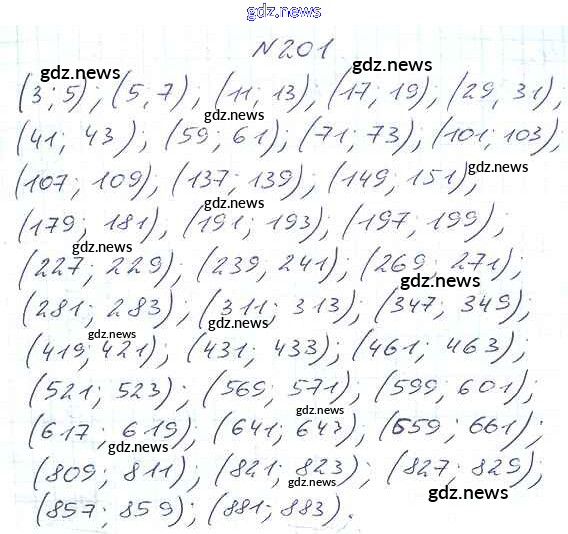 gdz.news
N201
gdz.news gdz.news
(3; 5); (5; 7); (11; 13); (17; 19); (29; 31);
gdz.news
(41; 43); (59; 61); (71; 73); (101; 103),
gdz.news
(107; 109); (137; 139); (149; 151),
(179; 181), (191; 193); (197; 199);
gdz.news
(227; 229); (239; 241); (269; 271);
gdz.news
(281; 283); (311; 313); (347; 349);
gdz.news gdz.news
(419; 421); (431; 433); (461; 463);
(521; 523); (569; 571); (599; 601);
gdz.news
(617; 619); (641; 643); (659; 661);
gdz.news
(809; 811); (821; 823); (827; 829);
gdz.news gdz.news
(857; 859); (881; 883).